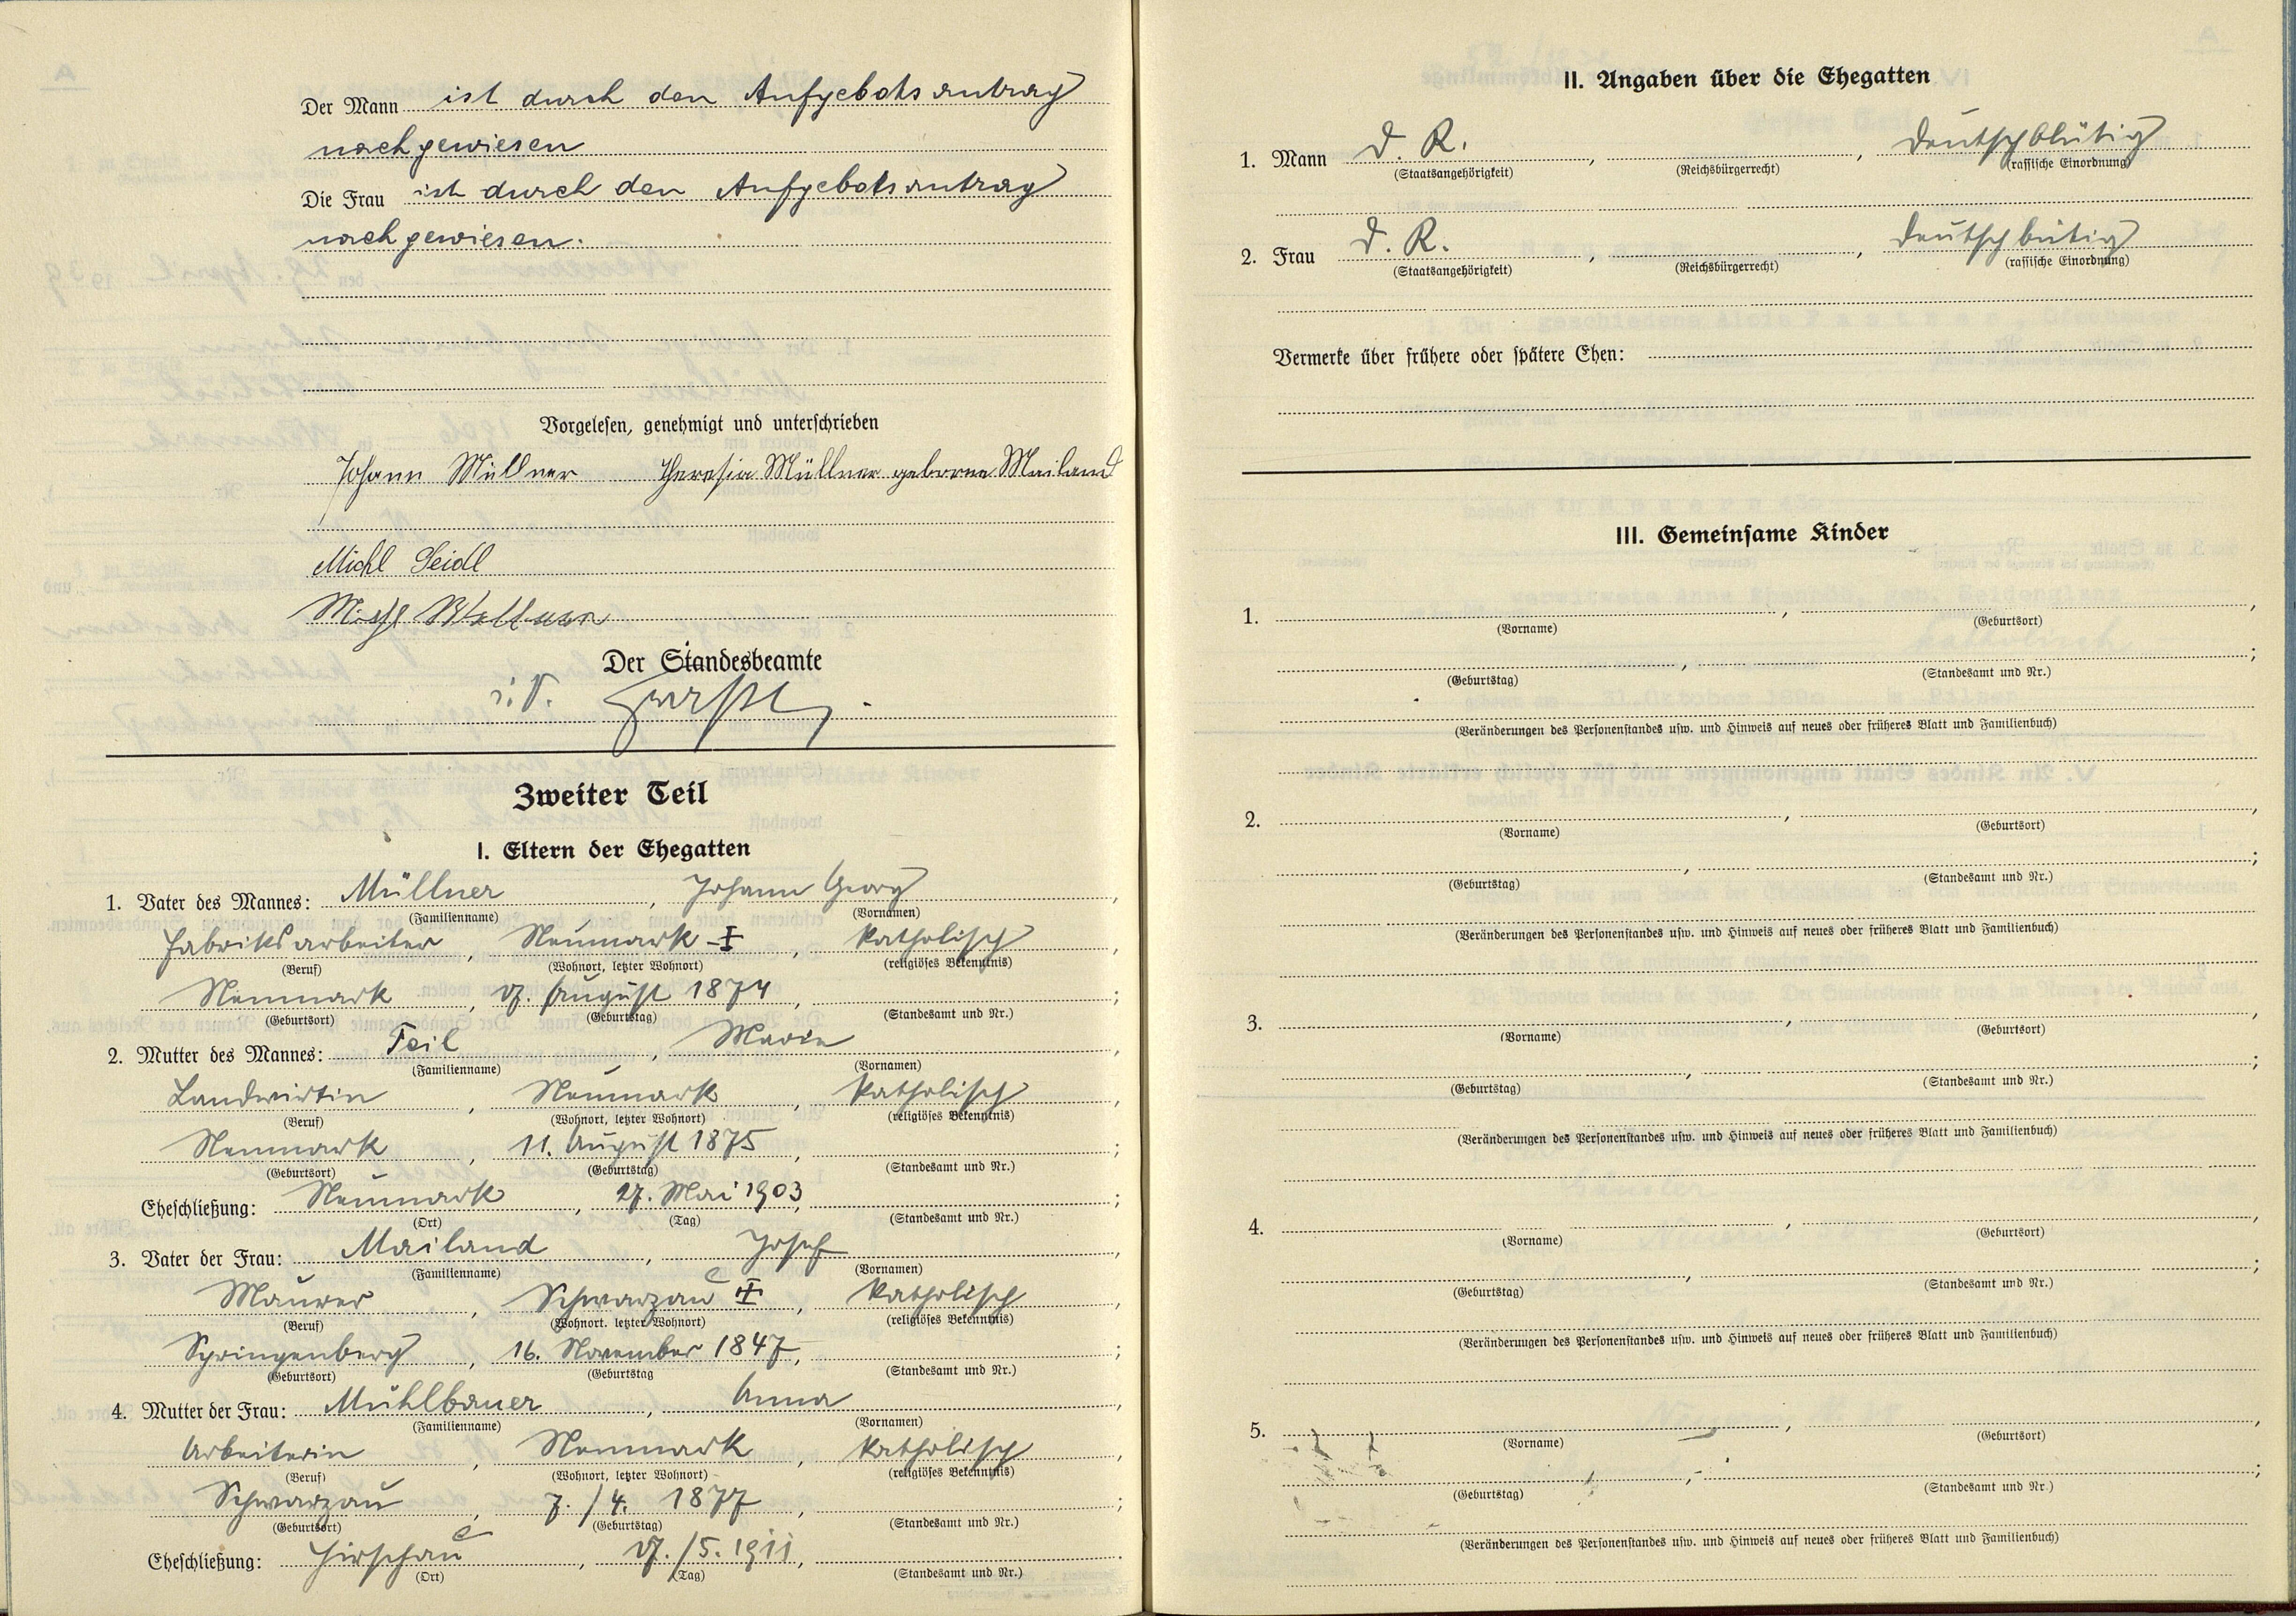 Der Mann ist durch den Aufgebotsantrag
nachgewiesen
Die Frau ist durch den Aufgebotsantrag
nachgewiesen.
Vorgelesen, genehmigt und unterschrieben
Johann Müllner Theresia Müllner geborene Mailand
Michl Seidl
Der Standesbeamte
i. V.
Zweiter Teil
I. Eltern der Ehegatten
1. Vater des Mannes: Müllner, Johann Georg,
(Familienname) (Vornamen)
Fabriksarbeiter, Neumark, katholisch,
(Beruf) (Wohnort, letzter Wohnort) (religiöses Bekenntnis)
Neumark, August 1874, ;
(Geburtsort) (Geburtstag) (Standesamt und Nr.)
2. Mutter des Mannes: Feil, Marie,
(Familienname) (Vornamen)
Landwirtin, Neumark, katholisch,
(Beruf) (Wohnort, letzter Wohnort) (religiöses Bekenntnis)
Neumark, 11. August 1875, ;
(Geburtsort) (Geburtstag) (Standesamt und Nr.)
Eheschließung: Neumark, 27. Mai 1903, ;
(Ort) (Tag) (Standesamt und Nr.)
3. Vater der Frau: Mailand, Josef,
(Familienname) (Vornamen)
Maurer, Schwarzau, katholisch,
(Beruf) (Wohnort, letzter Wohnort) (religiöses Bekenntnis)
Springenberg, 16. November 1847, ;
(Geburtsort) (Geburtstag (Standesamt und Nr.)
4. Mutter der Frau: Mühlbauer, Anna
(Familienname) (Vornamen)
Arbeiterin, Neumark, katholisch,
(Beruf) (Wohnort, letzter Wohnort) (religiöses Bekenntnis)
Schwarzau, 7./4. 1877, ;
(Geburtsort) (Geburtstag) (Standesamt und Nr.)
Eheschließung: Hirschau, /5. 1911, .
(Ort) (Tag) (Standesamt und Nr.)
II. Angaben über die Ehegatten
1. Mann D. R. , , deutschblütig
(Staatsangehörigkeit) (Reichsbürgerrecht) (rassische Einordnung)
2. Frau D. R. , , deutschblütig
(Staatsangehörigkeit) (Reichsbürgerrecht) (rassische Einordnung)
Vermerke über frühere oder spätere Ehen:
III. Gemeinsame Kinder
1. , ,
(Vorname) (Geburtsort)
, ;
(Geburtstag) (Standesamt und Nr.)
(Veränderungen des Personenstandes usw. und Hinweis auf neues oder früheres Blatt und Familienbuch)
2. , ,
(Vorname) (Geburtsort)
, ;
(Geburtstag) (Standesamt und Nr.)
(Veränderungen des Personenstandes usw. und Hinweis auf neues oder früheres Blatt und Familienbuch)
3. , ,
(Vorname) (Geburtsort)
, ;
(Geburtstag) (Standesamt und Nr.)
(Veränderungen des Personenstandes usw. und Hinweis auf neues oder früheres Blatt und Familienbuch)
4. , ,
(Vorname) (Geburtsort)
, ;
(Geburtstag) (Standesamt und Nr.)
(Veränderungen des Personenstandes usw. und Hinweis auf neues oder früheres Blatt und Familienbuch)
5. , ,
(Vorname) (Geburtsort)
, ;
(Geburtstag) (Standesamt und Nr.)
(Veränderungen des Personenstandes usw. und Hinweis auf neues oder früheres Blatt und Familienbuch)